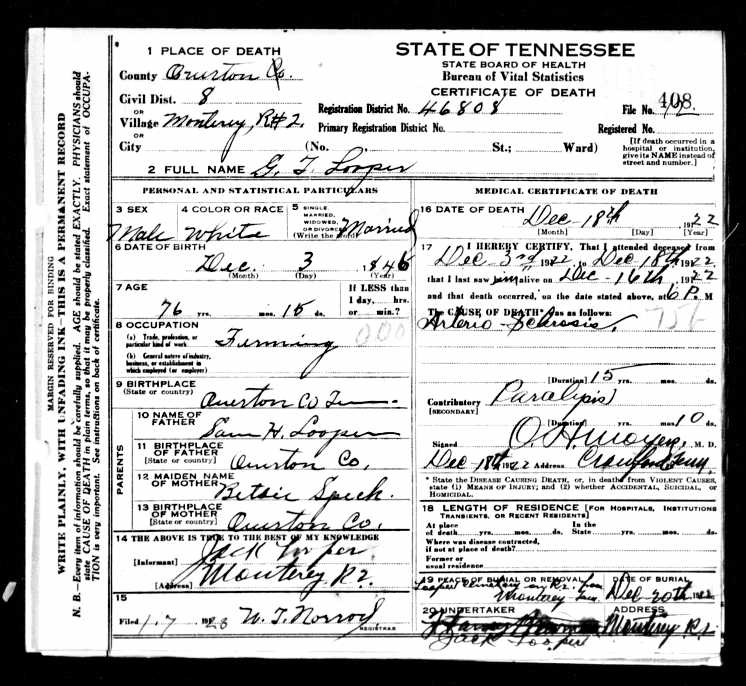 STATE OF TENNESSEE
STATE BOARD OF HEALTH
Bureau of Vital Statistics
CERTIFICATE OF DEATH
1 PLACE OF DEATH
County Overton Co.
Civil Dist. 8
OR
Village Monterey, R#2
OR
City (No. , St.; Ward)
Registration District No. 46808
File No. 408
Primary Registration District No.
Registered No.
[If death occurred in a hospital or institution, give its NAME instead of street and number.]
2 FULL NAME G. T. Looper
PERSONAL AND STATISTICAL PARTICULARS
3 SEX
Male
4 COLOR OR RACE
White
5 SINGLE, MARRIED, WIDOWED, OR DIVORCED
(Write the word)
Married
6 DATE OF BIRTH
Dec. 3, 1846
(Month) (Day) (Year)
7 AGE
76 yrs. mos. 15 ds.
If LESS than 1 day, hrs. or min.?
8 OCCUPATION
(a) Trade, profession, or particular kind of work
Ferming
000
(b) General nature of industry, business, or establishment in which employed (or employer)
9 BIRTHPLACE
(State or country)
Overton Co Tenn.
PARENTS
10 NAME OF FATHER
Sam H. Looper
11 BIRTHPLACE OF FATHER
[State or country]
Overton Co.
12 MAIDEN NAME OF MOTHER
Betsie Speck.
13 BIRTHPLACE OF MOTHER
[State or country]
Overton Co.
14 THE ABOVE IS TRUE TO THE BEST OF MY KNOWLEDGE
[Informant] Jack Looper
[Address] Monterey R2.
15
Filed 1-7 1923 W. T. Norrod
REGISTRAR
MEDICAL CERTIFICATE OF DEATH
16 DATE OF DEATH
Dec- 18th 1922
[Month] [Day] [Year]
17 I HEREBY CERTIFY, That I attended deceased from
Dec- 3rd 1922, to Dec 18th 1922
that I last saw him alive on Dec- 16th, 1922
and that death occurred, on the date stated above, at 6 P. M
The CAUSE OF DEATH* was as follows:
Arterio-Sclerosis,
[Duration] 15 yrs. mos. ds.
Contributory Paralysis
[SECONDARY]
[Duration] yrs. mos. 10 ds.
Signed O. H. Moyers, M. D.
Dec 18th 1922 Address Crawford Tenn,
* State the DISEASE CAUSING DEATH, or, in deaths from VIOLENT CAUSES, state (1) MEANS OF INJURY; and (2) whether ACCIDENTAL, SUICIDAL, or HOMICIDAL.
18 LENGTH OF RESIDENCE [FOR HOSPITALS, INSTITUTIONS TRANSIENTS, OR RECENT RESIDENTS]
At place of death yrs. mos. ds. In the State yrs. mos. ds.
Where was disease contracted, if not at place of death?
Former or usual residence
19 PLACE OF BURIAL OR REMOVAL
Looper Cemetery on R2. from
Monterey Tenn.
DATE OF BURIAL
Dec- 20th 1922
20 UNDERTAKER
Jack Looper
ADDRESS
Monterey R2
MARGIN RESERVED FOR BINDING
WRITE PLAINLY, WITH UNFADING INK—THIS IS A PERMANENT RECORD
N. B.—Every item of information should be carefully supplied. AGE should be stated EXACTLY. PHYSICIANS should state CAUSE OF DEATH in plain terms, so that it may be properly classified. Exact statement of OCCUPATION is very important. See instructions on back of certificate.